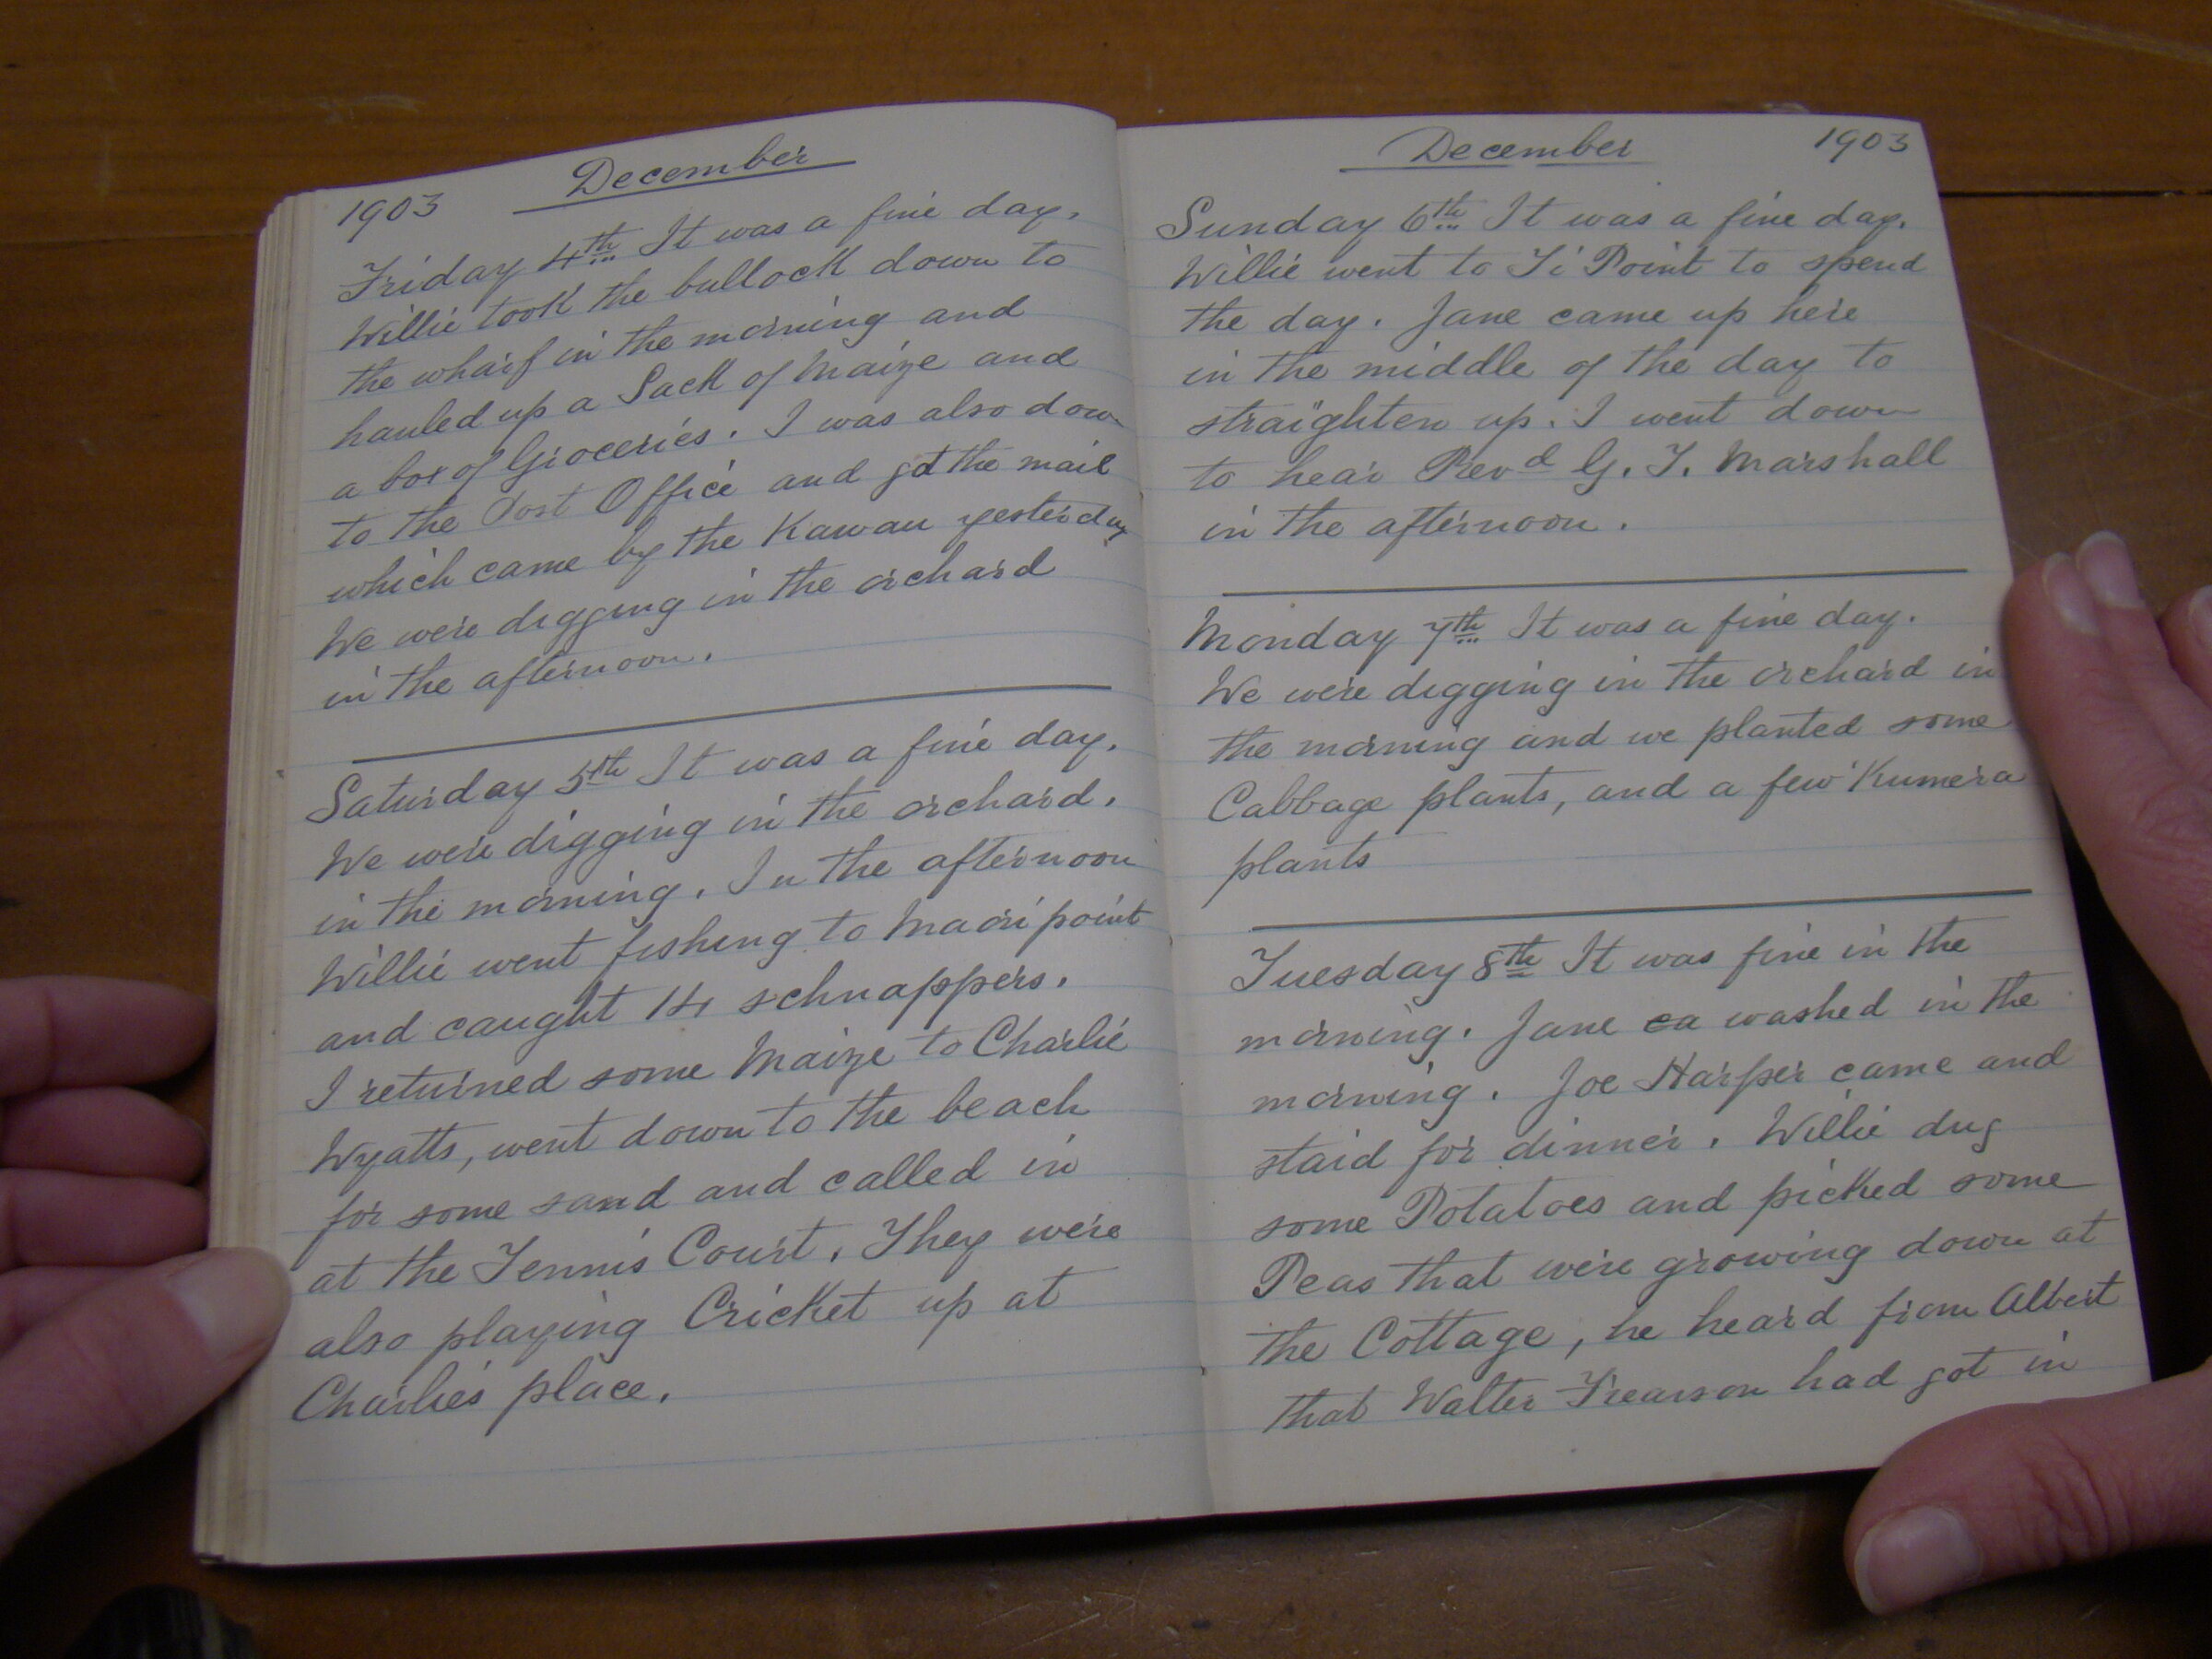 1903 December
Friday 4th It was a fine day.
Willie took the bullock down to
the wharf in the morning and
hauled up a Sack of Maize and
a box of Groceries. I was also down
to the Post Office and got the mail
which came by the Kawau yesterday
We were digging in the orchard
in the afternoon.
Saturday 5th It was a fine day.
We were digging in the orchard.
in the morning. In the afternoon
Willie went fishing to Maori point
and caught 14 schnappers.
I returned some Maize to Charlie
Wyatts, went down to the beach
for some sand and called in
at the Tennis Court. They were
also playing Cricket up at
Charlie's place.
December 1903
Sunday 6th It was a fine day.
Willie went to Ti Point to spend
the day. Jane came up here
in the middle of the day to
straighten up. I went down
to hear Revd G. T. Marshall
in the afternoon.
Monday 7th It was a fine day.
We were digging in the orchard in
the morning and we planted some
Cabbage plants, and a few Kumera
plants
Tuesday 8th It was fine in the
morning. Jane ca washed in the
morning. Joe Harper came and
staid for dinner. Willie dug
some Potatoes and picked some
Peas that were growing down at
the Cottage, he heard from Albert
that Walter Frearson had got in